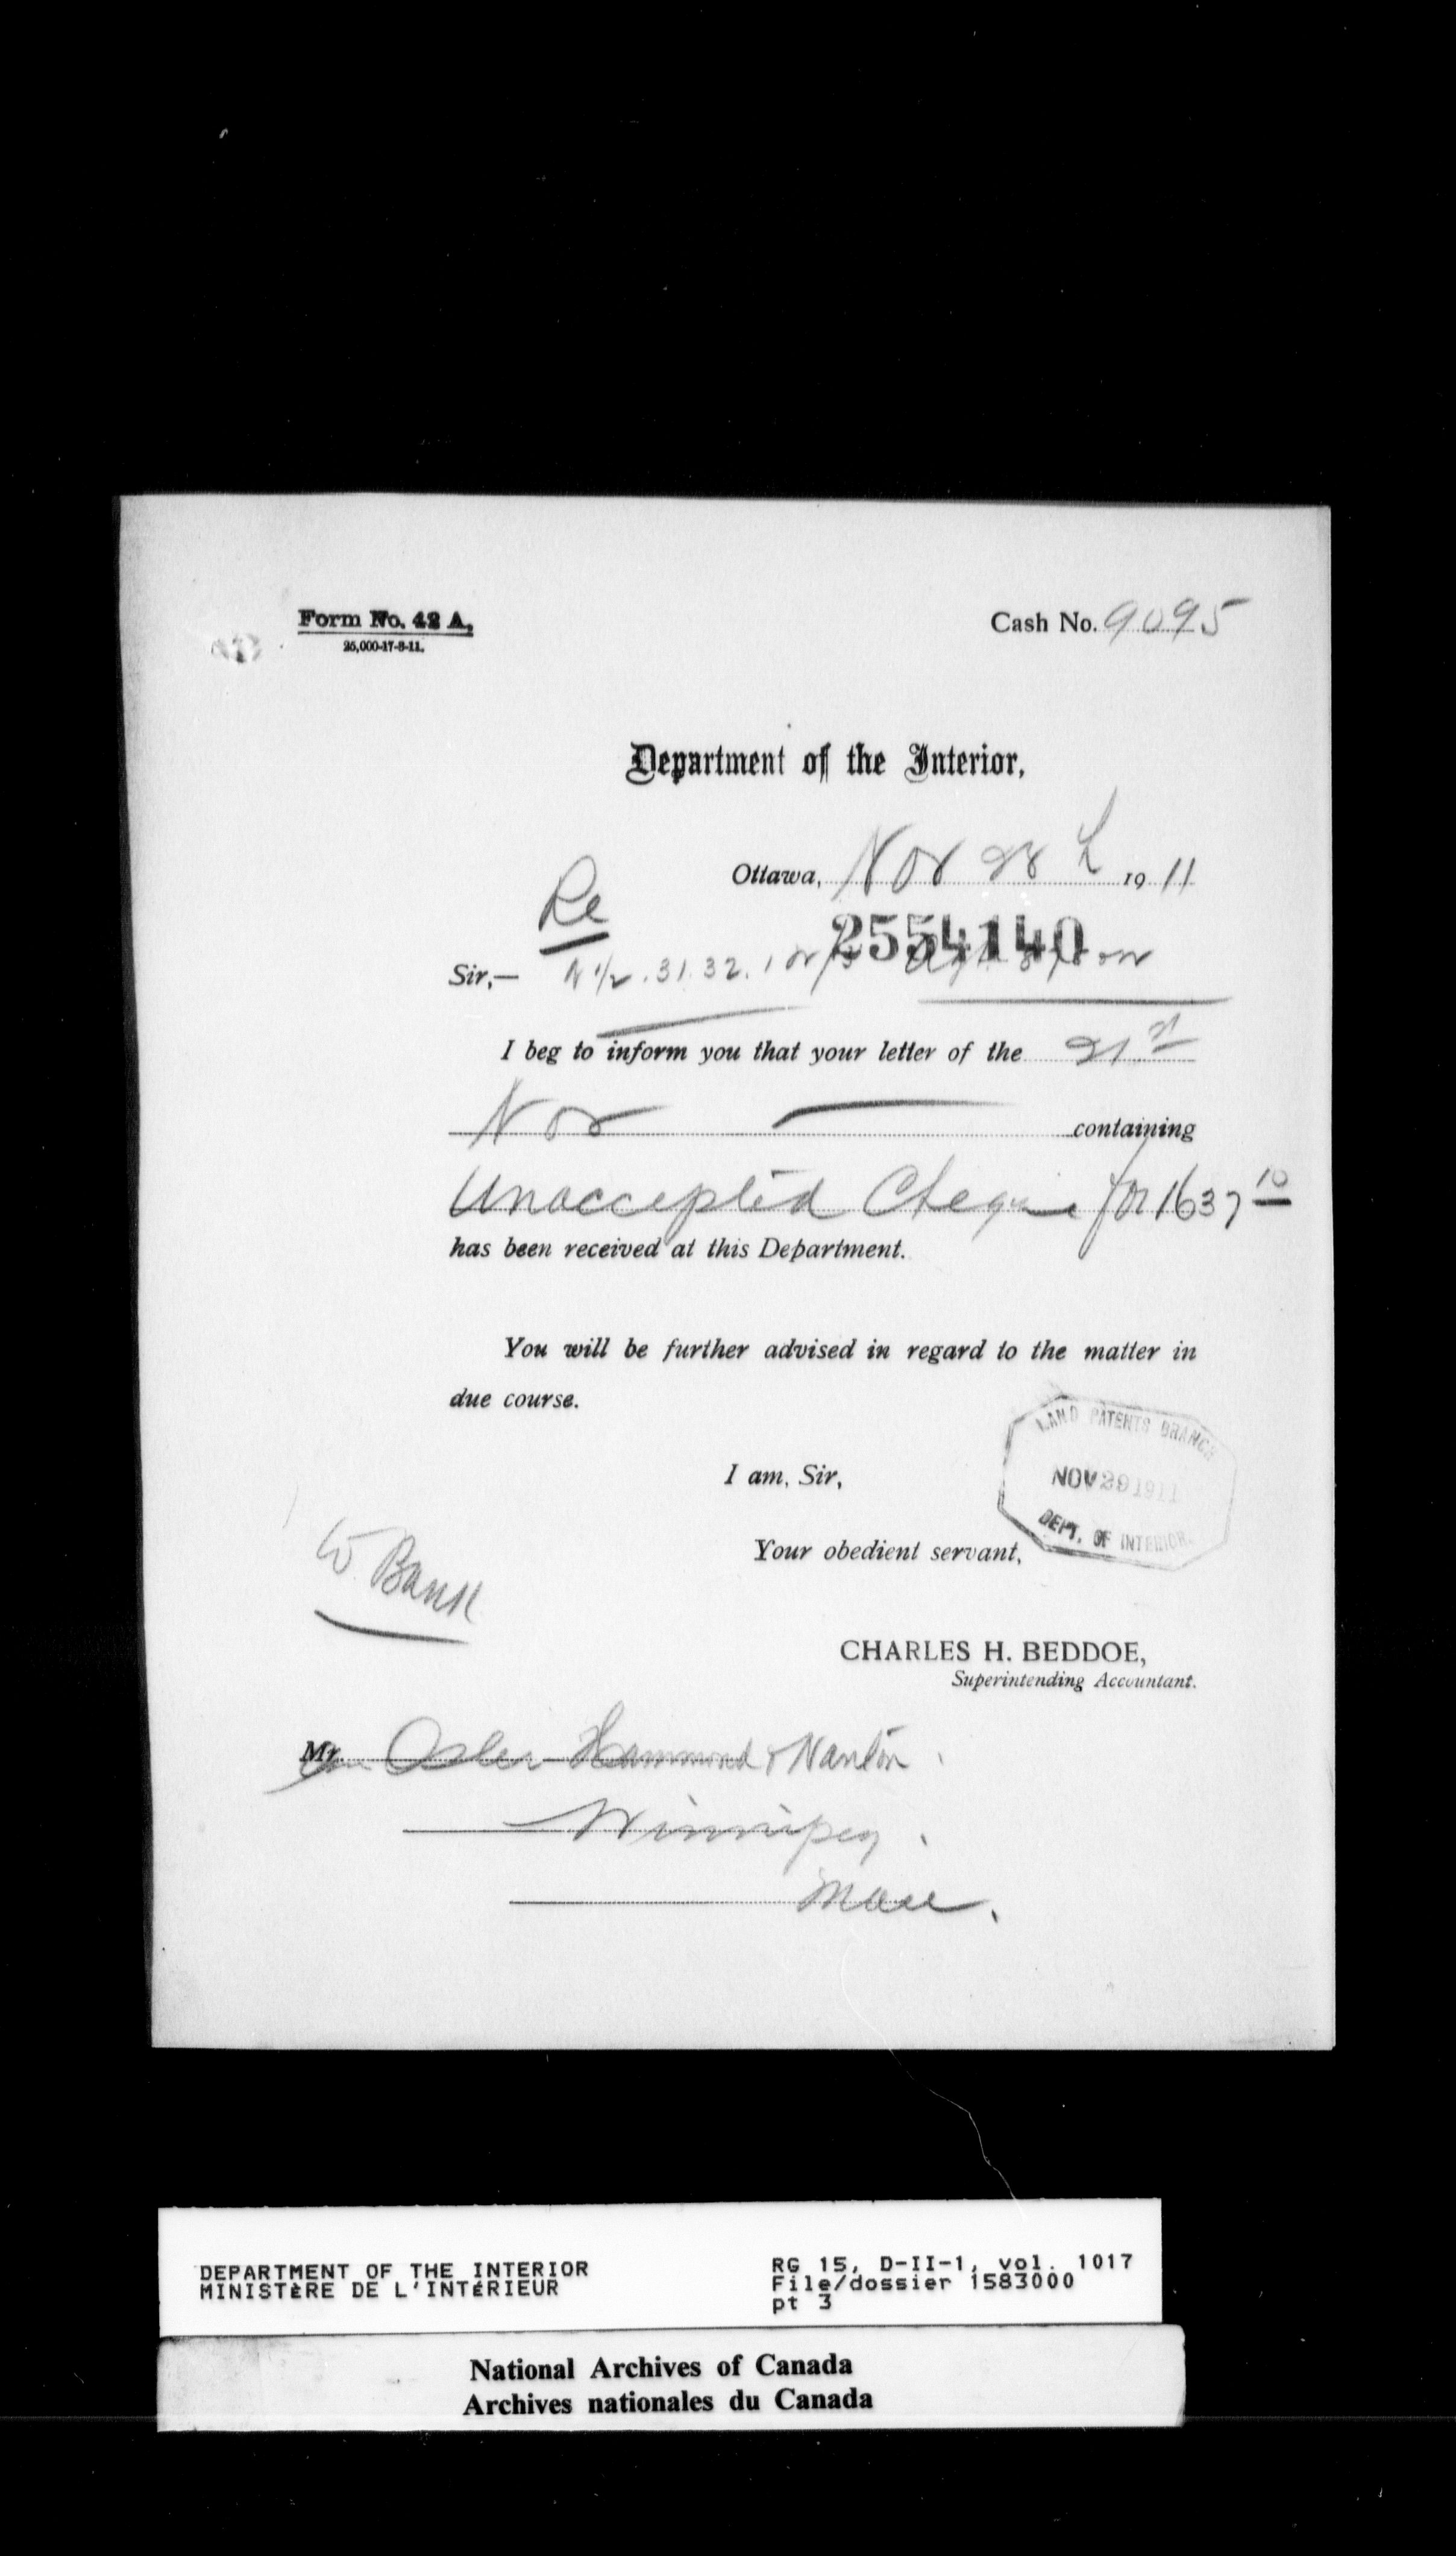 Form No. 42 A.
25,000-17-8-11.
Cash No. 9095
Department of the Interior,
Ottawa, Nov 28th 1911
Re
2554140
Sir,— N 1/2 . 31. 32.
I beg to inform you that your letter of the 21st
Nov — containing
Unaccepted Cheque for 1637 10
has been received at this Department.
You will be further advised in regard to the matter in
due course.
LAND PATENTS BRANCH
NOV 29 1911
DEPT. OF INTERIOR.
I am, Sir,
Your obedient servant,
W Bank
CHARLES H. BEDDOE,
Superintending Accountant.
Mr. Osler Hammond & Nanton
Winnipeg.
Man.
DEPARTMENT OF THE INTERIOR
MINISTÈRE DE L'INTÉRIEUR
RG 15, D-II-1, vol. 1017
File/dossier 1583000
pt 3
National Archives of Canada
Archives nationales du Canada